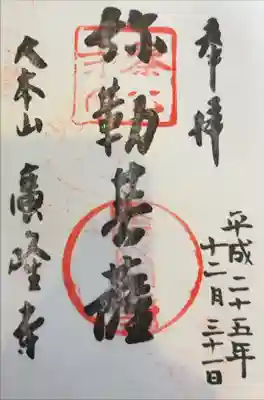 奉拝
平成二十五年
十二月三十一日
弥勒菩薩
大本山
廣峰寺